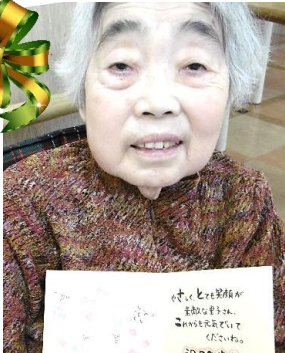 やさしく、とても笑顔が
素敵な里子さん。
これからも元気でいて
くださいね。